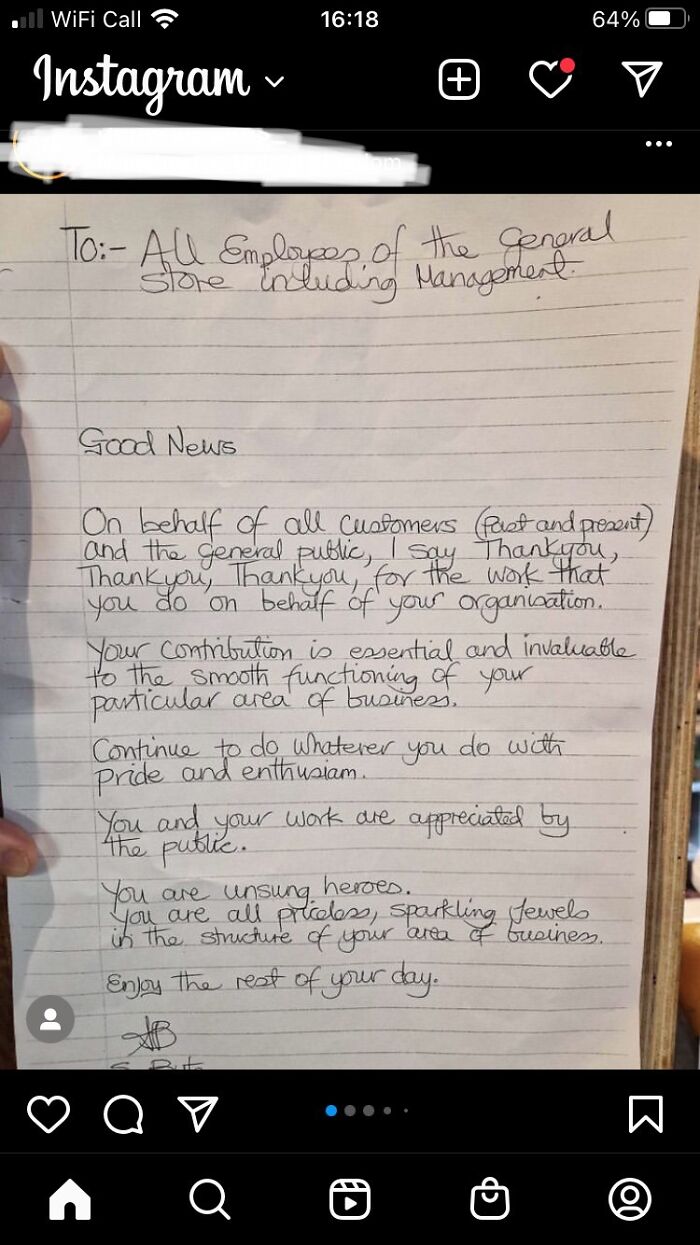 WiFi Call
16:18
64%
Instagram
To:- All Employees of the General
Store including Management.
Good News
On behalf of all customers (past and present)
and the general public, I say Thankyou,
Thankyou, Thankyou, for the work that
you do on behalf of your organisation.
Your contribution is essential and invaluable
to the smooth functioning of your
particular area of business.
Continue to do whatever you do with
pride and enthusiam.
You and your work are appreciated by
the public.
You are unsung heroes.
You are all priceless, sparkling jewels
in the structure of your area of business.
Enjoy the rest of your day.